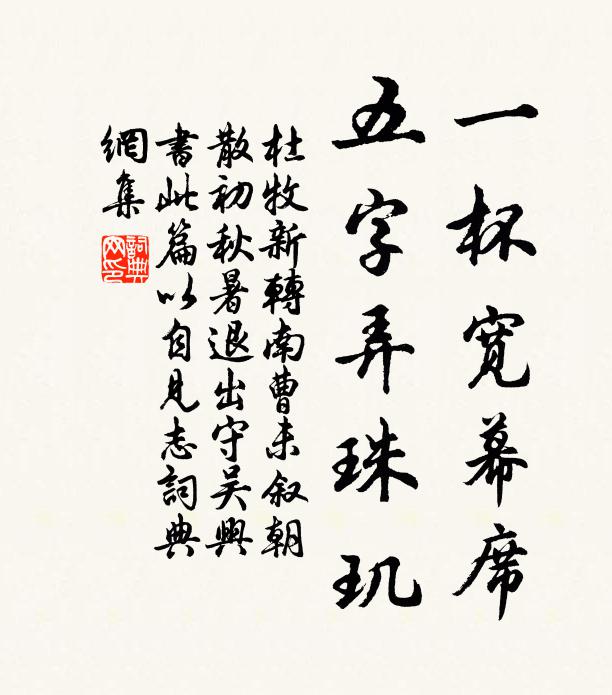 一杯宽幕席
五字弄珠玑
杜牧新轉南曹未叙朝
散初秋暑退出守吴興
書此篇以自見志詞典
網集
詞典
网印